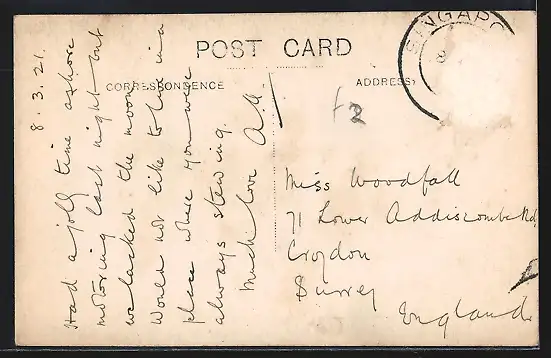 POST CARD
CORRESPONDENCE
ADDRESS
SINGAPO
8.3.21.
Had a jolly time ashore
motoring last night but
we lacked the moon
Would not like to live in a
place where you were
always stewing.
Much love
Miss Woodfall
71 Lower Addiscombe Rd,
Croydon
Surrey
England.